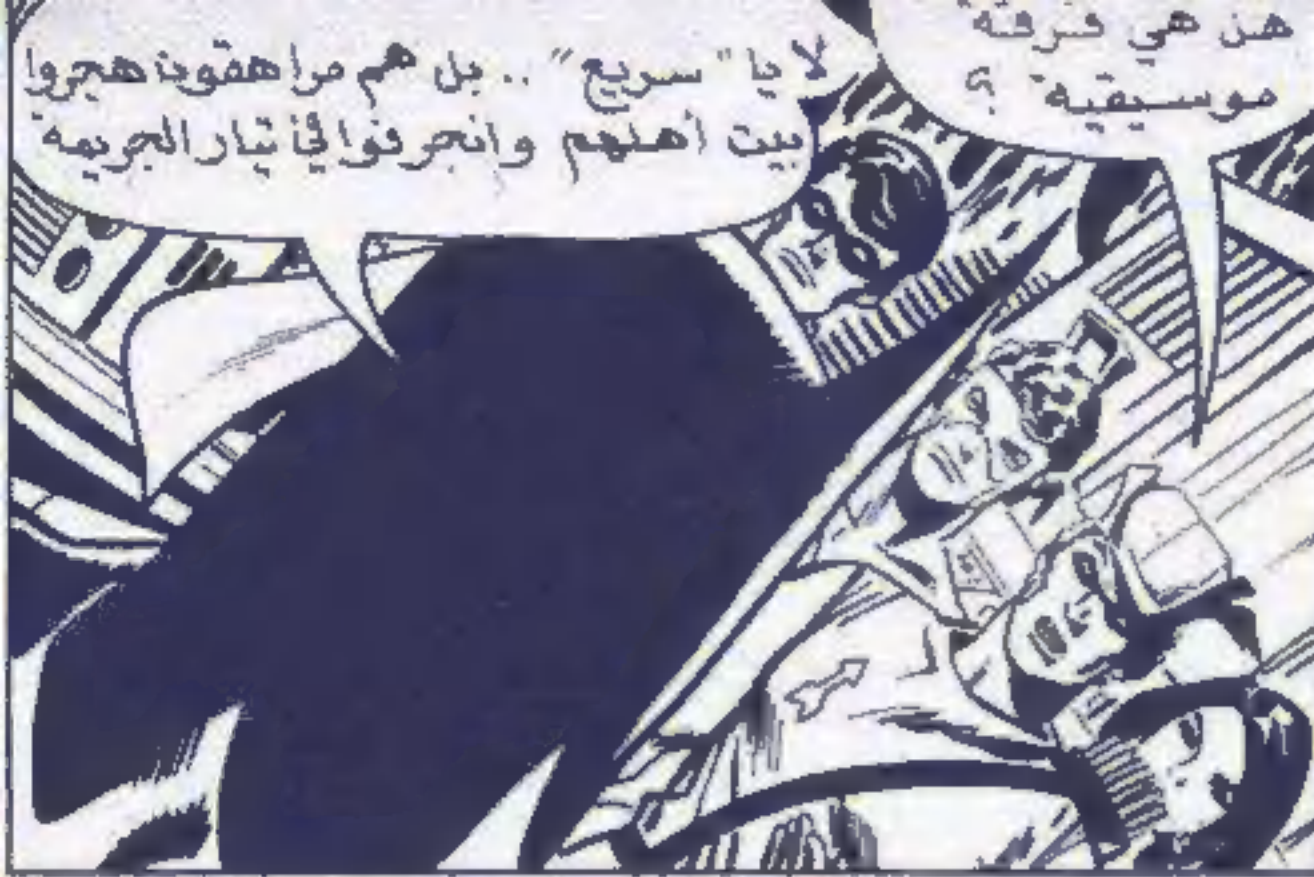 هن هي فرقة
موسيقية ؟
لا يا " سريع " .. بل هم مراهقون هجروا
بيت أهلهم وانجرفوا في تيار الجريمة